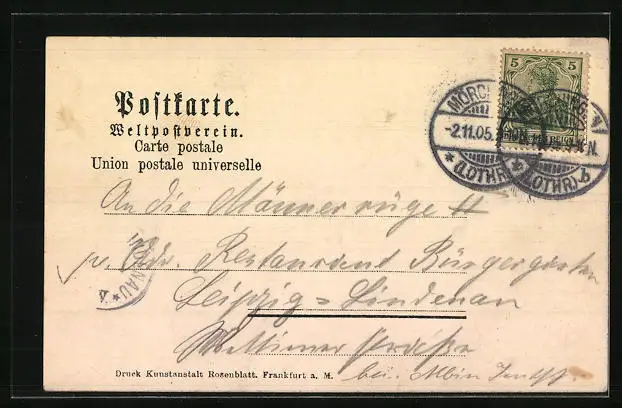 Postkarte.
Weltpostverein.
Carte postale
Union postale universelle
5 5
MÖRCH
-2.11.05.
*(LOTHR)
(LOTHR).b
N.
An die Männerrüge II
p. Adr. Restaurant Bürgergarten
NAU
V. *
Leipzig=Lindenau
Wettiner Straße
bei Albin
Druck Kunstanstalt Rosenblatt. Frankfurt a. M.